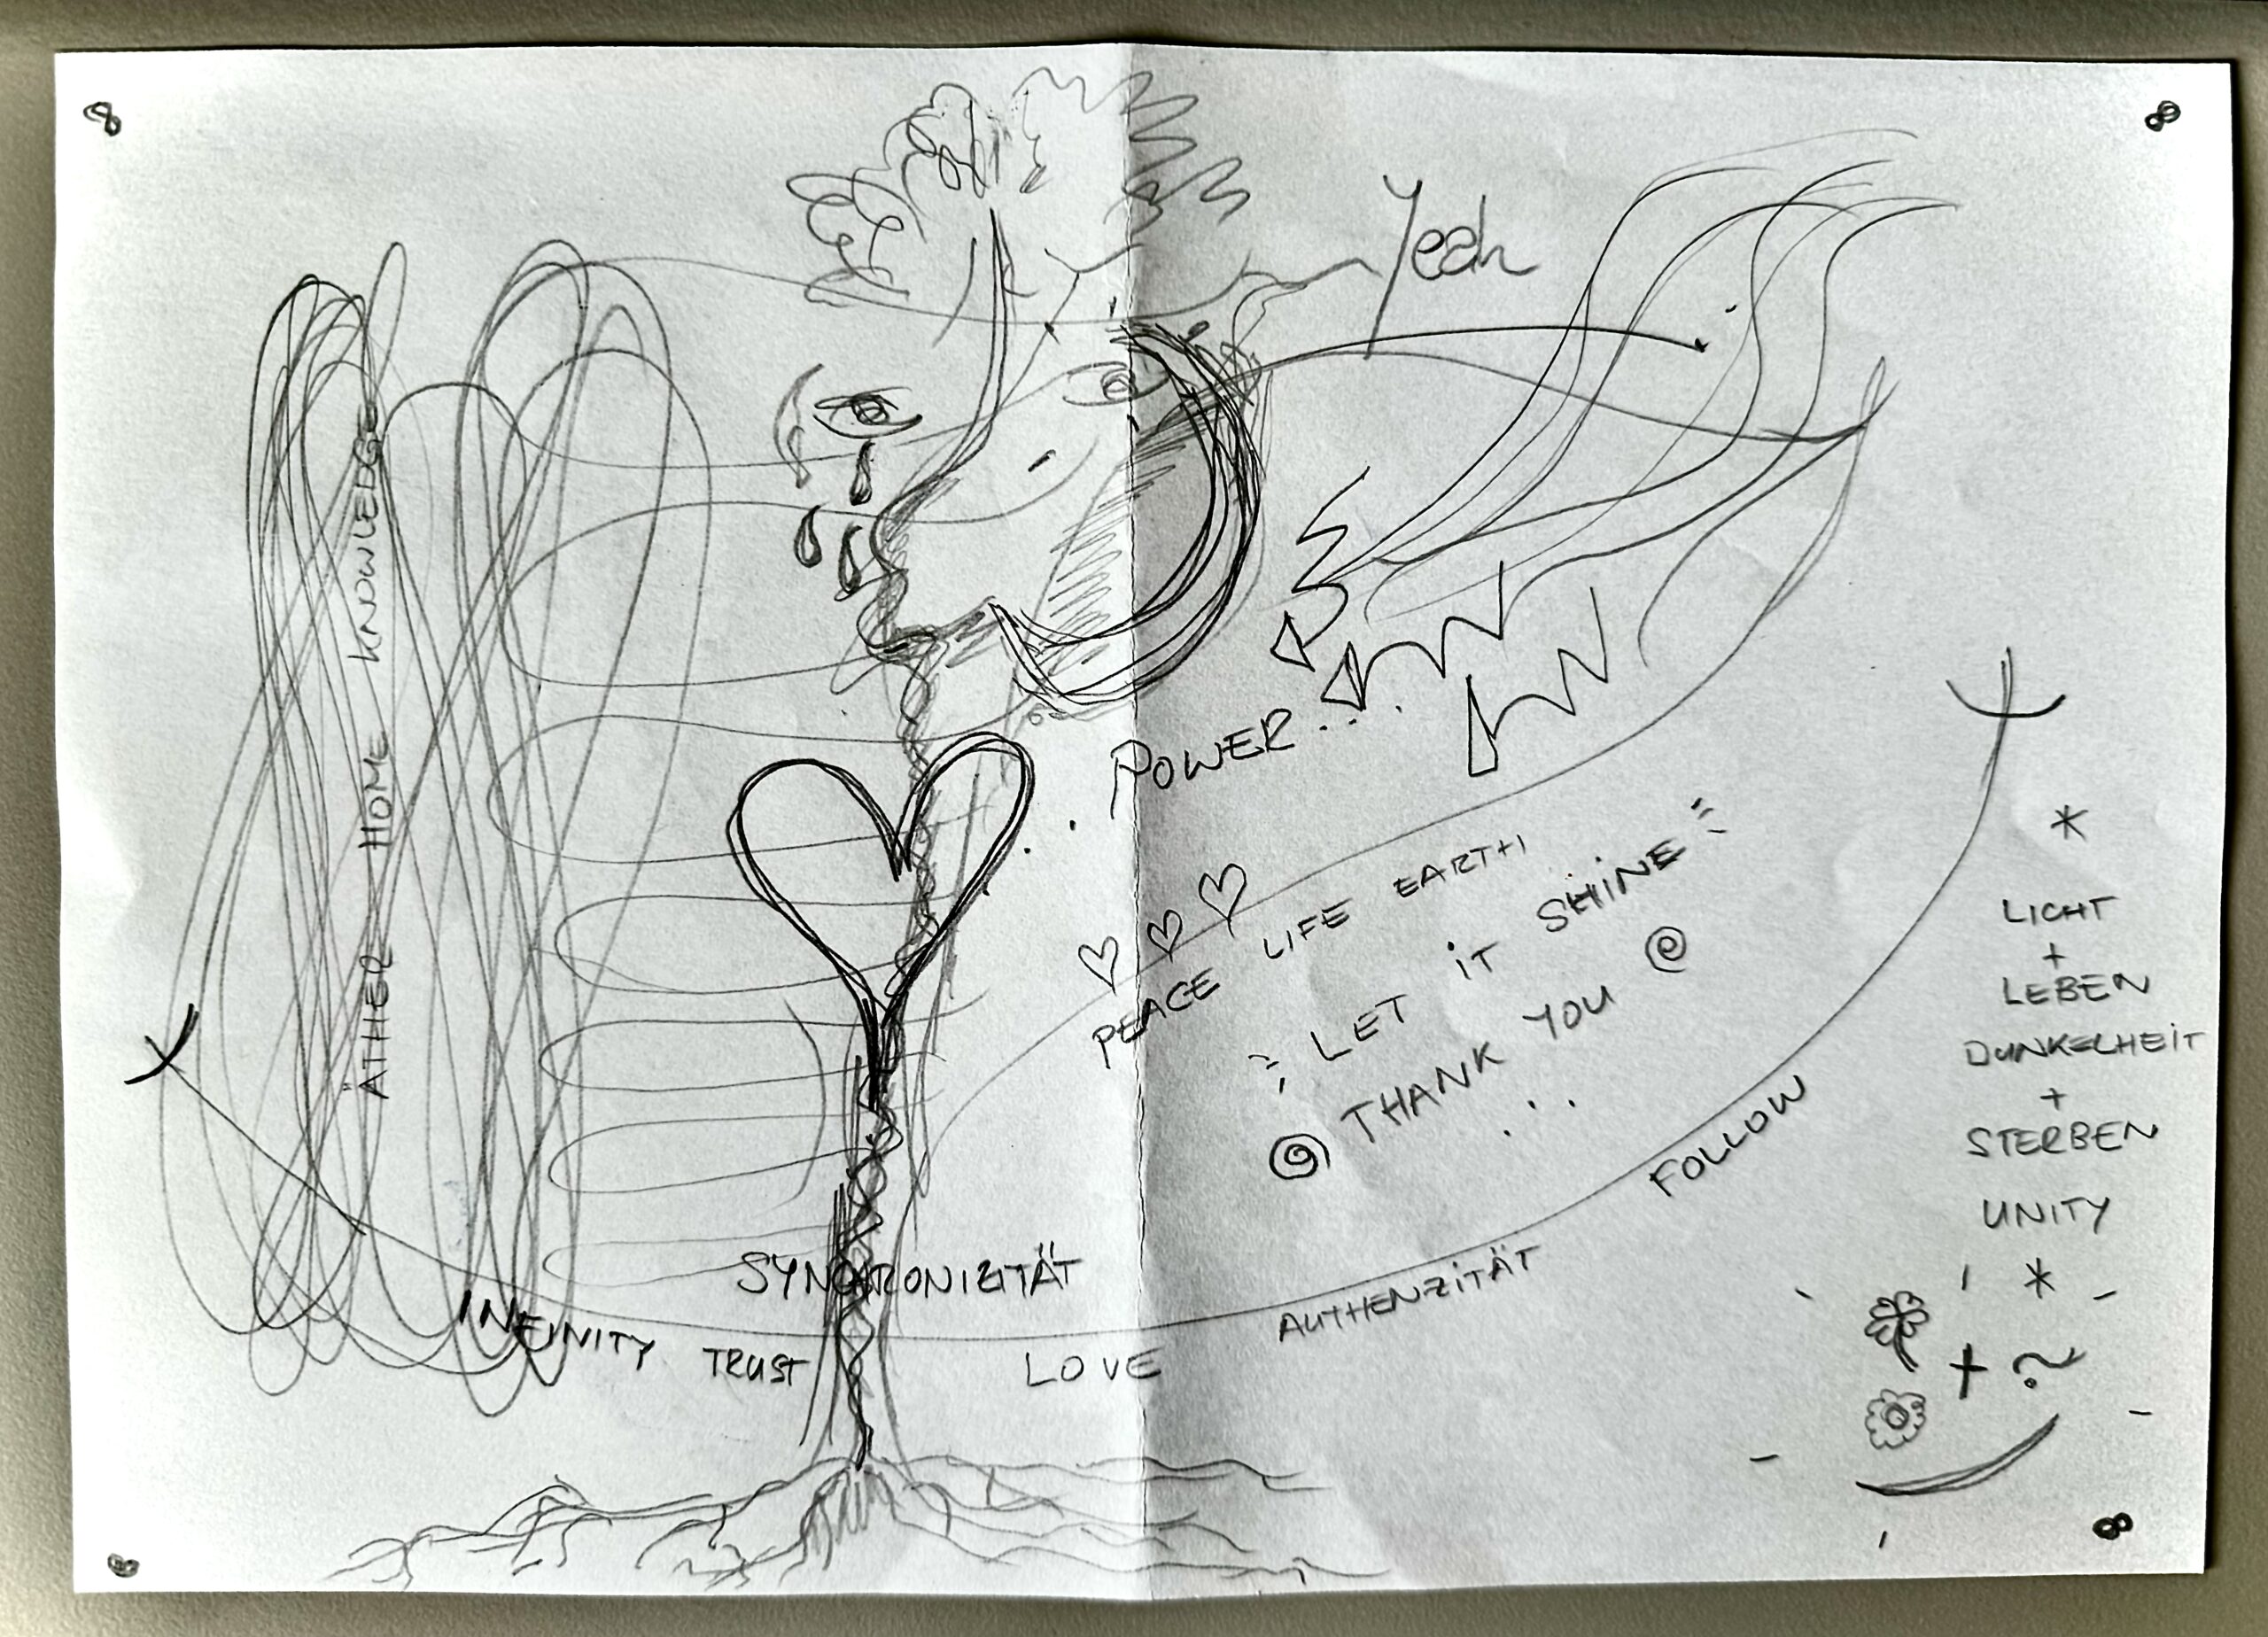 Yeah
ÄTHER HOME KNOWLEDGE
POWER...
PEACE LIFE EARTH
LET iT SHiNE
THANK YOU
*
LICHT
+
LEBEN
DUNKELHEiT
+
STERBEN
UNiTY
*
+ ?
SYNCHRONIZITÄT
INFINITY TRUST LOVE AUTHENZiTÄT FOLLOW